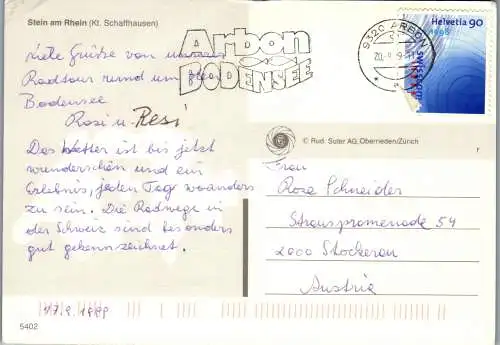 Stein am Rhein (Kt. Schaffhausen)
Viele Grüsse von unserer
Radtour rund um den
Bodensee
Rosi u. Resi
Das Wetter ist bis jetzt
wunderschön und ein
Erlebnis, jeden Tag woanders
zu sein. Die Radwege in
der Schweiz sind besonders
gut gekennzeichnet.
17.9.1999
5402
Arbon
BODENSEE
9320 ARBON
Helvetia 90
1998
© Rud. Suter AG, Oberrieden/Zürich
r
Frau
Rosa Schneider
Strauspromenade 54
2000 Stockerau
Austria